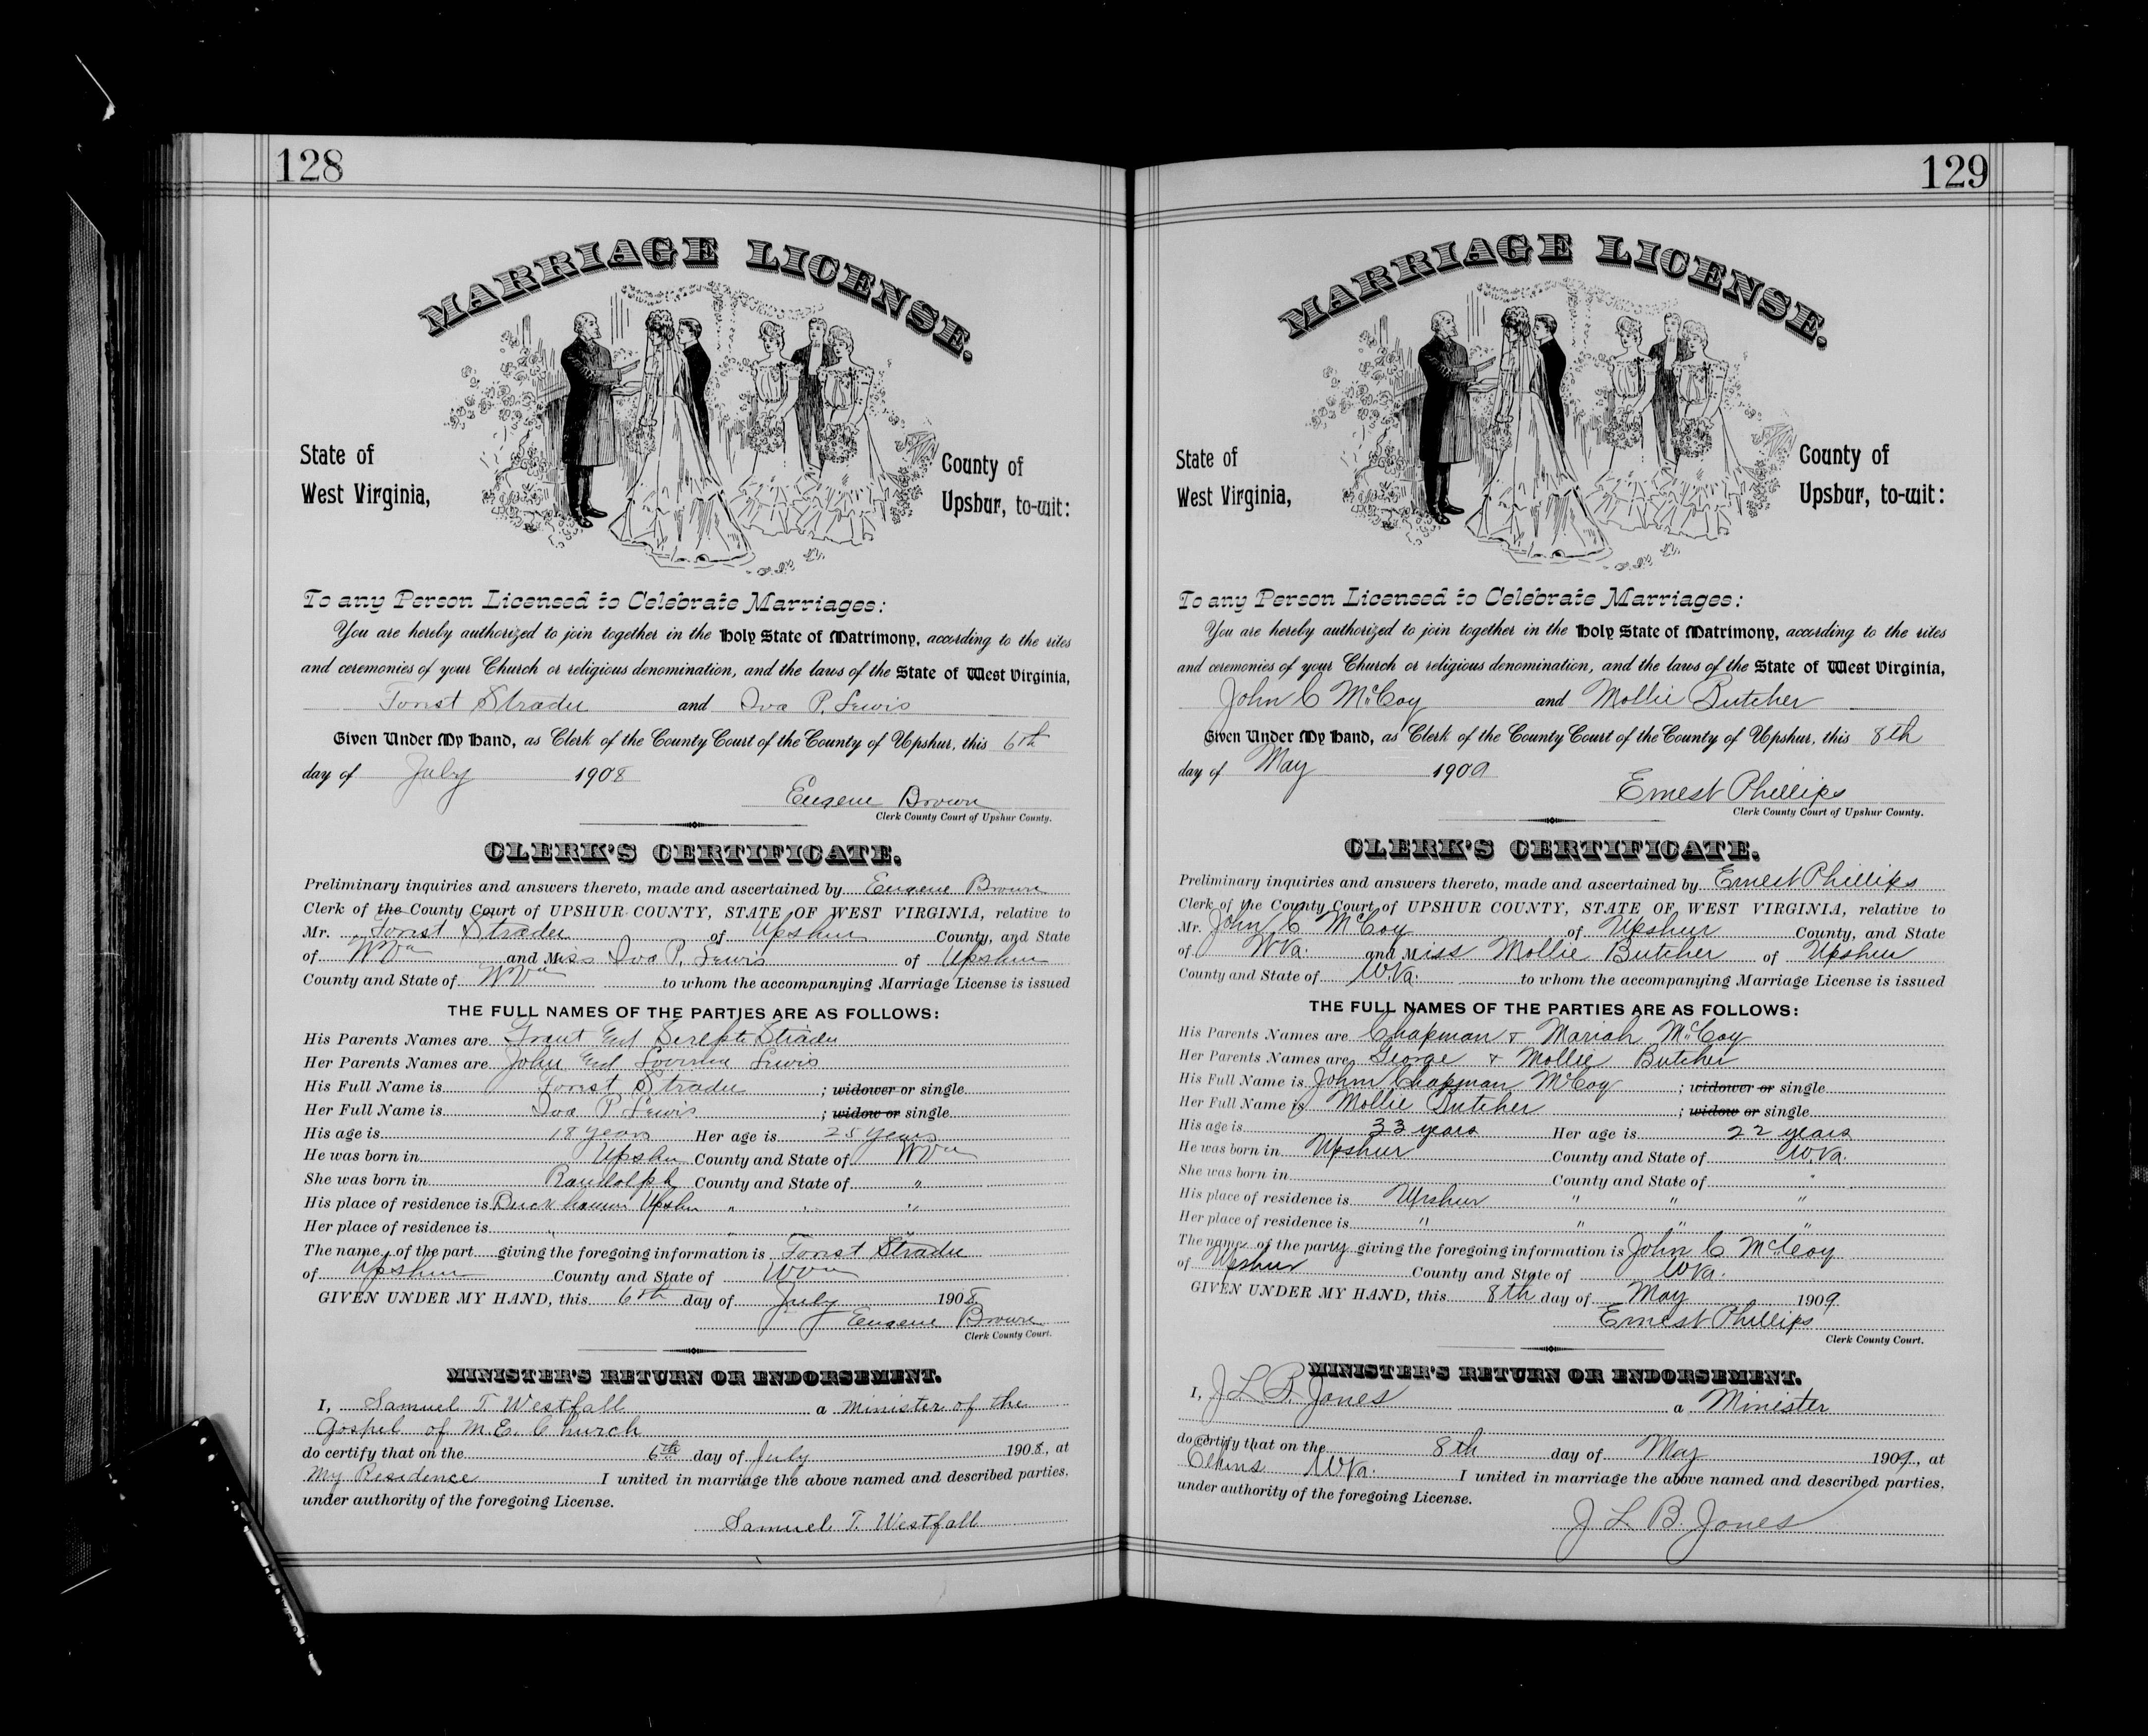 128
MARRIAGE LICENSE.
State of
West Virginia,
County of
Upshur, to-wit:
To any Person Licensed to Celebrate Marriages:
You are hereby authorized to join together in the Holy State of Matrimony, according to the rites
and ceremonies of your Church or religious denomination, and the laws of the State of West Virginia,
Forest Strader and Iva P. Lewis
Given Under My Hand, as Clerk of the County Court of the County of Upshur, this 6th
day of July 1908
Eugene Brown
Clerk County Court of Upshur County.
CLERK'S CERTIFICATE.
Preliminary inquiries and answers thereto, made and ascertained by Eugene Brown
Clerk of the County Court of UPSHUR COUNTY, STATE OF WEST VIRGINIA, relative to
Mr. Forest Strader of Upshur County, and State
of W Va and Miss Iva P. Lewis of Upshur
County and State of W Va to whom the accompanying Marriage License is issued
THE FULL NAMES OF THE PARTIES ARE AS FOLLOWS:
His Parents Names are Grant Strader
Her Parents Names are John Lewis
His Full Name is Forest Strader ; widower or single
Her Full Name is Iva P Lewis ; widow or single
His age is 18 years Her age is 25 years
He was born in Upshur County and State of W Va
She was born in Randolph County and State of "
His place of residence is Buckhannon Upshur " " "
Her place of residence is " " "
The name of the part giving the foregoing information is Forest Strader
of Upshur County and State of W Va
GIVEN UNDER MY HAND, this 6th day of July 1908
Eugene Brown
Clerk County Court.
MINISTER'S RETURN OR ENDORSEMENT.
I, Samuel T. Westfall a minister of the
Gospel of M.E. Church
do certify that on the 6th day of July 1908, at
My Residence I united in marriage the above named and described parties,
under authority of the foregoing License.
Samuel T. Westfall
129
MARRIAGE LICENSE.
State of
West Virginia,
County of
Upshur, to-wit:
To any Person Licensed to Celebrate Marriages:
You are hereby authorized to join together in the Holy State of Matrimony, according to the rites
and ceremonies of your Church or religious denomination, and the laws of the State of West Virginia,
John C McCoy and Mollie Butcher
Given Under My Hand, as Clerk of the County Court of the County of Upshur, this 8th
day of May 1909
Ernest Phillips
Clerk County Court of Upshur County.
CLERK'S CERTIFICATE.
Preliminary inquiries and answers thereto, made and ascertained by Ernest Phillips
Clerk of the County Court of UPSHUR COUNTY, STATE OF WEST VIRGINIA, relative to
Mr. John C McCoy of Upshur County, and State
of W.Va. and Miss Mollie Butcher of Upshur
County and State of W.Va. to whom the accompanying Marriage License is issued
THE FULL NAMES OF THE PARTIES ARE AS FOLLOWS:
His Parents Names are Chapman & Mariah McCoy
Her Parents Names are George & Mollie Butcher
His Full Name is John Chapman McCoy ; widower or single
Her Full Name is Mollie Butcher ; widow or single
His age is 33 years Her age is 22 years
He was born in Upshur County and State of W.Va.
She was born in County and State of "
His place of residence is Upshur " " "
Her place of residence is " " " "
The name of the party giving the foregoing information is John C McCoy
of Upshur County and State of W.Va.
GIVEN UNDER MY HAND, this 8th day of May 1909
Ernest Phillips
Clerk County Court.
MINISTER'S RETURN OR ENDORSEMENT.
I, J L B. Jones a Minister
do certify that on the 8th day of May 1909, at
Elkins W.Va. I united in marriage the above named and described parties,
under authority of the foregoing License.
J L B. Jones